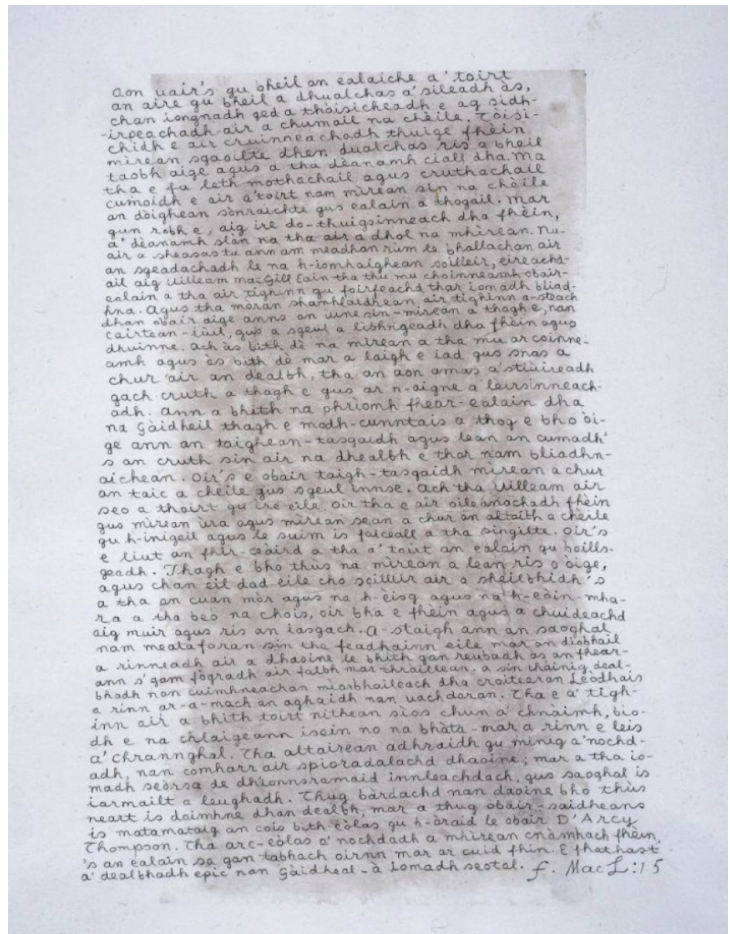 Aon uair's gu bheil an ealaiche a' toirt
an aire gu bheil a dhualchas a' sileadh ás,
chan iongnadh ged a thòisicheadh e ag sidh-
-irpeachadh air a chumail na chèile. Tòisi-
chidh e air cruinneachadh thuige fhèin
mìrean sgaoilte dhen dualchas ris a bheil
taobh aige agus a tha dèanamh ciall dha. Ma
tha e fa leth mothachail agus cruthachail
cumaidh e air a' toirt nam mìrean sin na chèile
an dòighean sònraichte gus ealain a thogail. Mar
gun robh e, aig ìre do-thuigsinneach dha fhèin,
a' dèanamh slàn na tha air a dhol na mhìrean. Nu-
air a sheasas tu ann am meadhan rùm le bhallachan air
an sgeadachadh le na h-ìomhaighean soilleir, eireachd-
ail aig Uilleam MacGill Eain tha thu mu choinneamh obair-
ealain a tha air tighinn gu foirfeachd thar iomadh bliad-
hna. Agus tha mòran shamhlaidhean, air tighinn a-steach
dhan obair aige anns an ùine sin - mìrean a thagh e, nan
cairtean-iùil, gus a sgeul a libhrigeadh dha fhèin agus
dhuinne. Ach às bith dè na mìrean a tha mu ar coinne-
amh agus às bith dè mar a laigh e iad gus snas a
chur air an dealbh, tha an aon amas a' stiùireadh
gach cruth a thagh e gus ar n-aigne a leirsinneach-
adh. Ann a bhith na phrìomh fhear-ealain dha
na Gàidheil thagh e modh-cunntais a thog e bho òi-
ge ann an taighean-tasgaidh agus lean an cumadh'
s an cruth sin air na dhealbh e thar nam bliadhn-
aichean. Oir's e obair taigh-tasgaidh mìrean a chur
an taic a chèile gus sgeul innse. Ach tha Uilleam air
seo a thoirt gu ìre eile. Oir tha e air oileanachadh fhèin
gus mìrean ùra agus mìrean sean a chur an altaibh a chèile
gu h-inigeil agus le suim is faiceall a tha singilte. Oir's
e liut an fhir-ceàird a tha a' toirt an ealain gu boills-
geadh. Thagh e bho thùs na mìrean a lean ris o òige,
agus chan eil dad eile cho soilleir air a sheilbhidh's
a tha an cuan mòr agus na h-èisg agus na h-eòin-mha-
ra a tha beò na chois, oir bha e fhèin agus a chuideachd
aig muir agus ris an iasgach. A-staigh ann an saoghal
nam meataforan sin tha feadhainn eile mar an dìobhail
a rinneadh air a dhaoine le bhith gan reubadh às an fhear-
ann s' gam fògradh air falbh mar thràillean. A sin thàinig deal-
bhadh nan cuimhneachan mìorbhaileach dha croitearan Leòdhais
a rinn ar-a-mach an aghaidh nan uachdaran. Tha e a' tigh-
inn air a bhith toirt nithean sìos chun a' chnàimh, bio-
dh e na chlaigeann isein no na bhàta - mar a rinn e leis
a' Chrannghal. Tha altairean adhraidh gu minig a' nochd-
adh, nan comharr air spioradalachd dhaoine; mar a tha io-
madh seòrsa de dh'ionnsramaid innleachdach, gus saoghal is
iarmailt a leughadh. Thug bàrdachd nan daoine bho thùs
neart is doimhne dhan dealbh, mar a thug obair-saidheans
is matamataig an cois bith-eòlas gu h-àraid le obair D'Arcy
Thompson. Tha arc-eòlas a' nochdadh a mhìrean cnàmhach fhèin,
's an ealain sa gan tabhach oirnn mar ar cuid fhìn. E fhathast
a' dealbhadh epic nan Gàidheal - à iomadh seotal. f. MacL:15